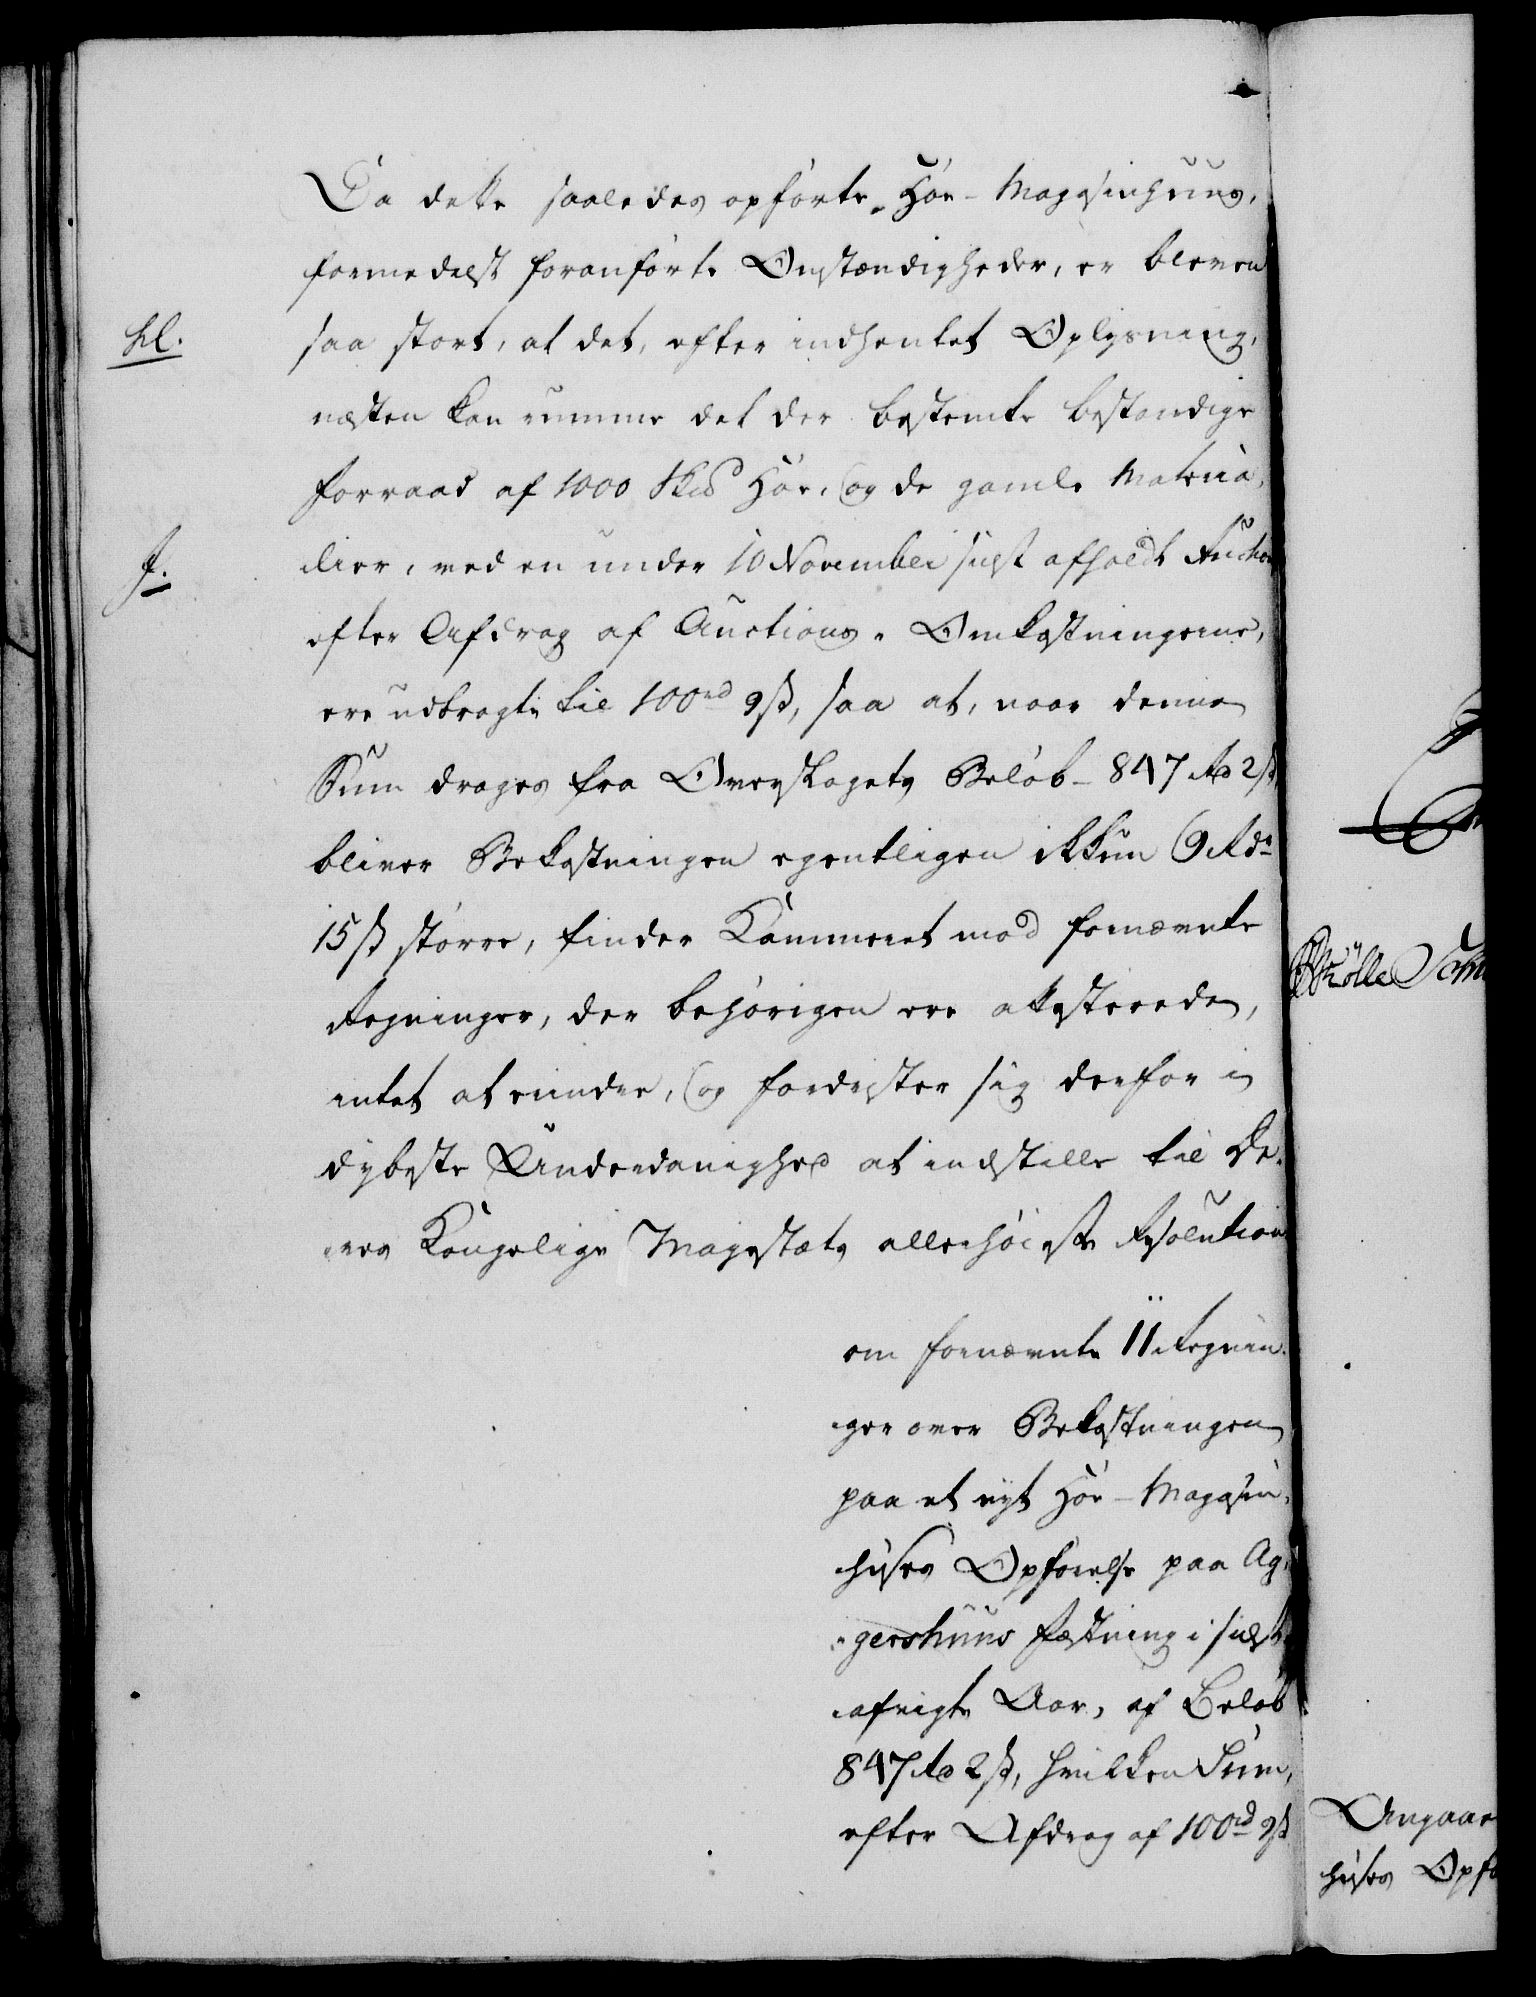 Da dette saaledes opførte Høe-Magasinhuus,
formedelst foranførte Omstændigheder, er bleven
hl. saa stort, at det, efter indhentet Oplysning,
næsten kan rumme det der bestemte bestandige
Forraad af 1000 Skd Høe, og de gamle Materia-
J. lier, ved en under 10 November sidst afholdt Auction
efter Afdrag af Auctions-Omkostningerne,
ere udbragte til 100 rd 9 ß, saa at, naar denne
Sum drages fra Overslagets Beløb - 847 Rd 2 ß,
bliver Bekostningen egentligen ikkun 9 Rdr
15 ß større, finder Kammeret mod fornævnte
Regninger, der behørigen ere attesterede,
intet at erindre, og fordrister sig derfor i
dybeste Underdanighed at indstille til De-
res Kongelige Majestæts allerhøieste Resolution
om fornævnte 11 Regnin-
ger over Bekostningen
paa et nyt Høe-Magasin-
huses Opførelse paa Ag-
gershuus Fæstning i sidst
afvigte Aar, af Beløb
847 Rd 2 ß, hvilken Sum,
efter Afdrag af 100 rd 9 ß
Angaae
huses Opfø